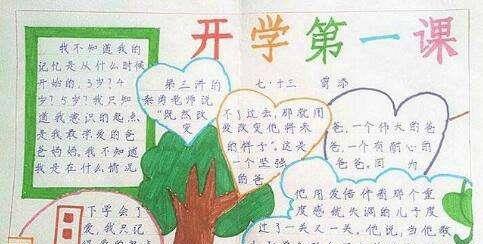 开学第一课
七·十三 贾添
我不知道我的
记忆是从什么时候
开始的,3岁?4
岁?5岁?我只知
道我意识的起点,
是我敬爱的爸
爸妈妈。我不知道
我是在什么情况
下学会了
爱,我只记
第三讲的
秦勇老师说
"既然改
变
不了过去,那就用
爱改变他将来
的样子"。这是
一个坚强
的爸
爸,一个伟大的爸
爸,一个有耐心的
爸爸。因 为
他用爱陪伴着那个重
度感统失调的儿子度
过了一天又一天。他说,当他敢